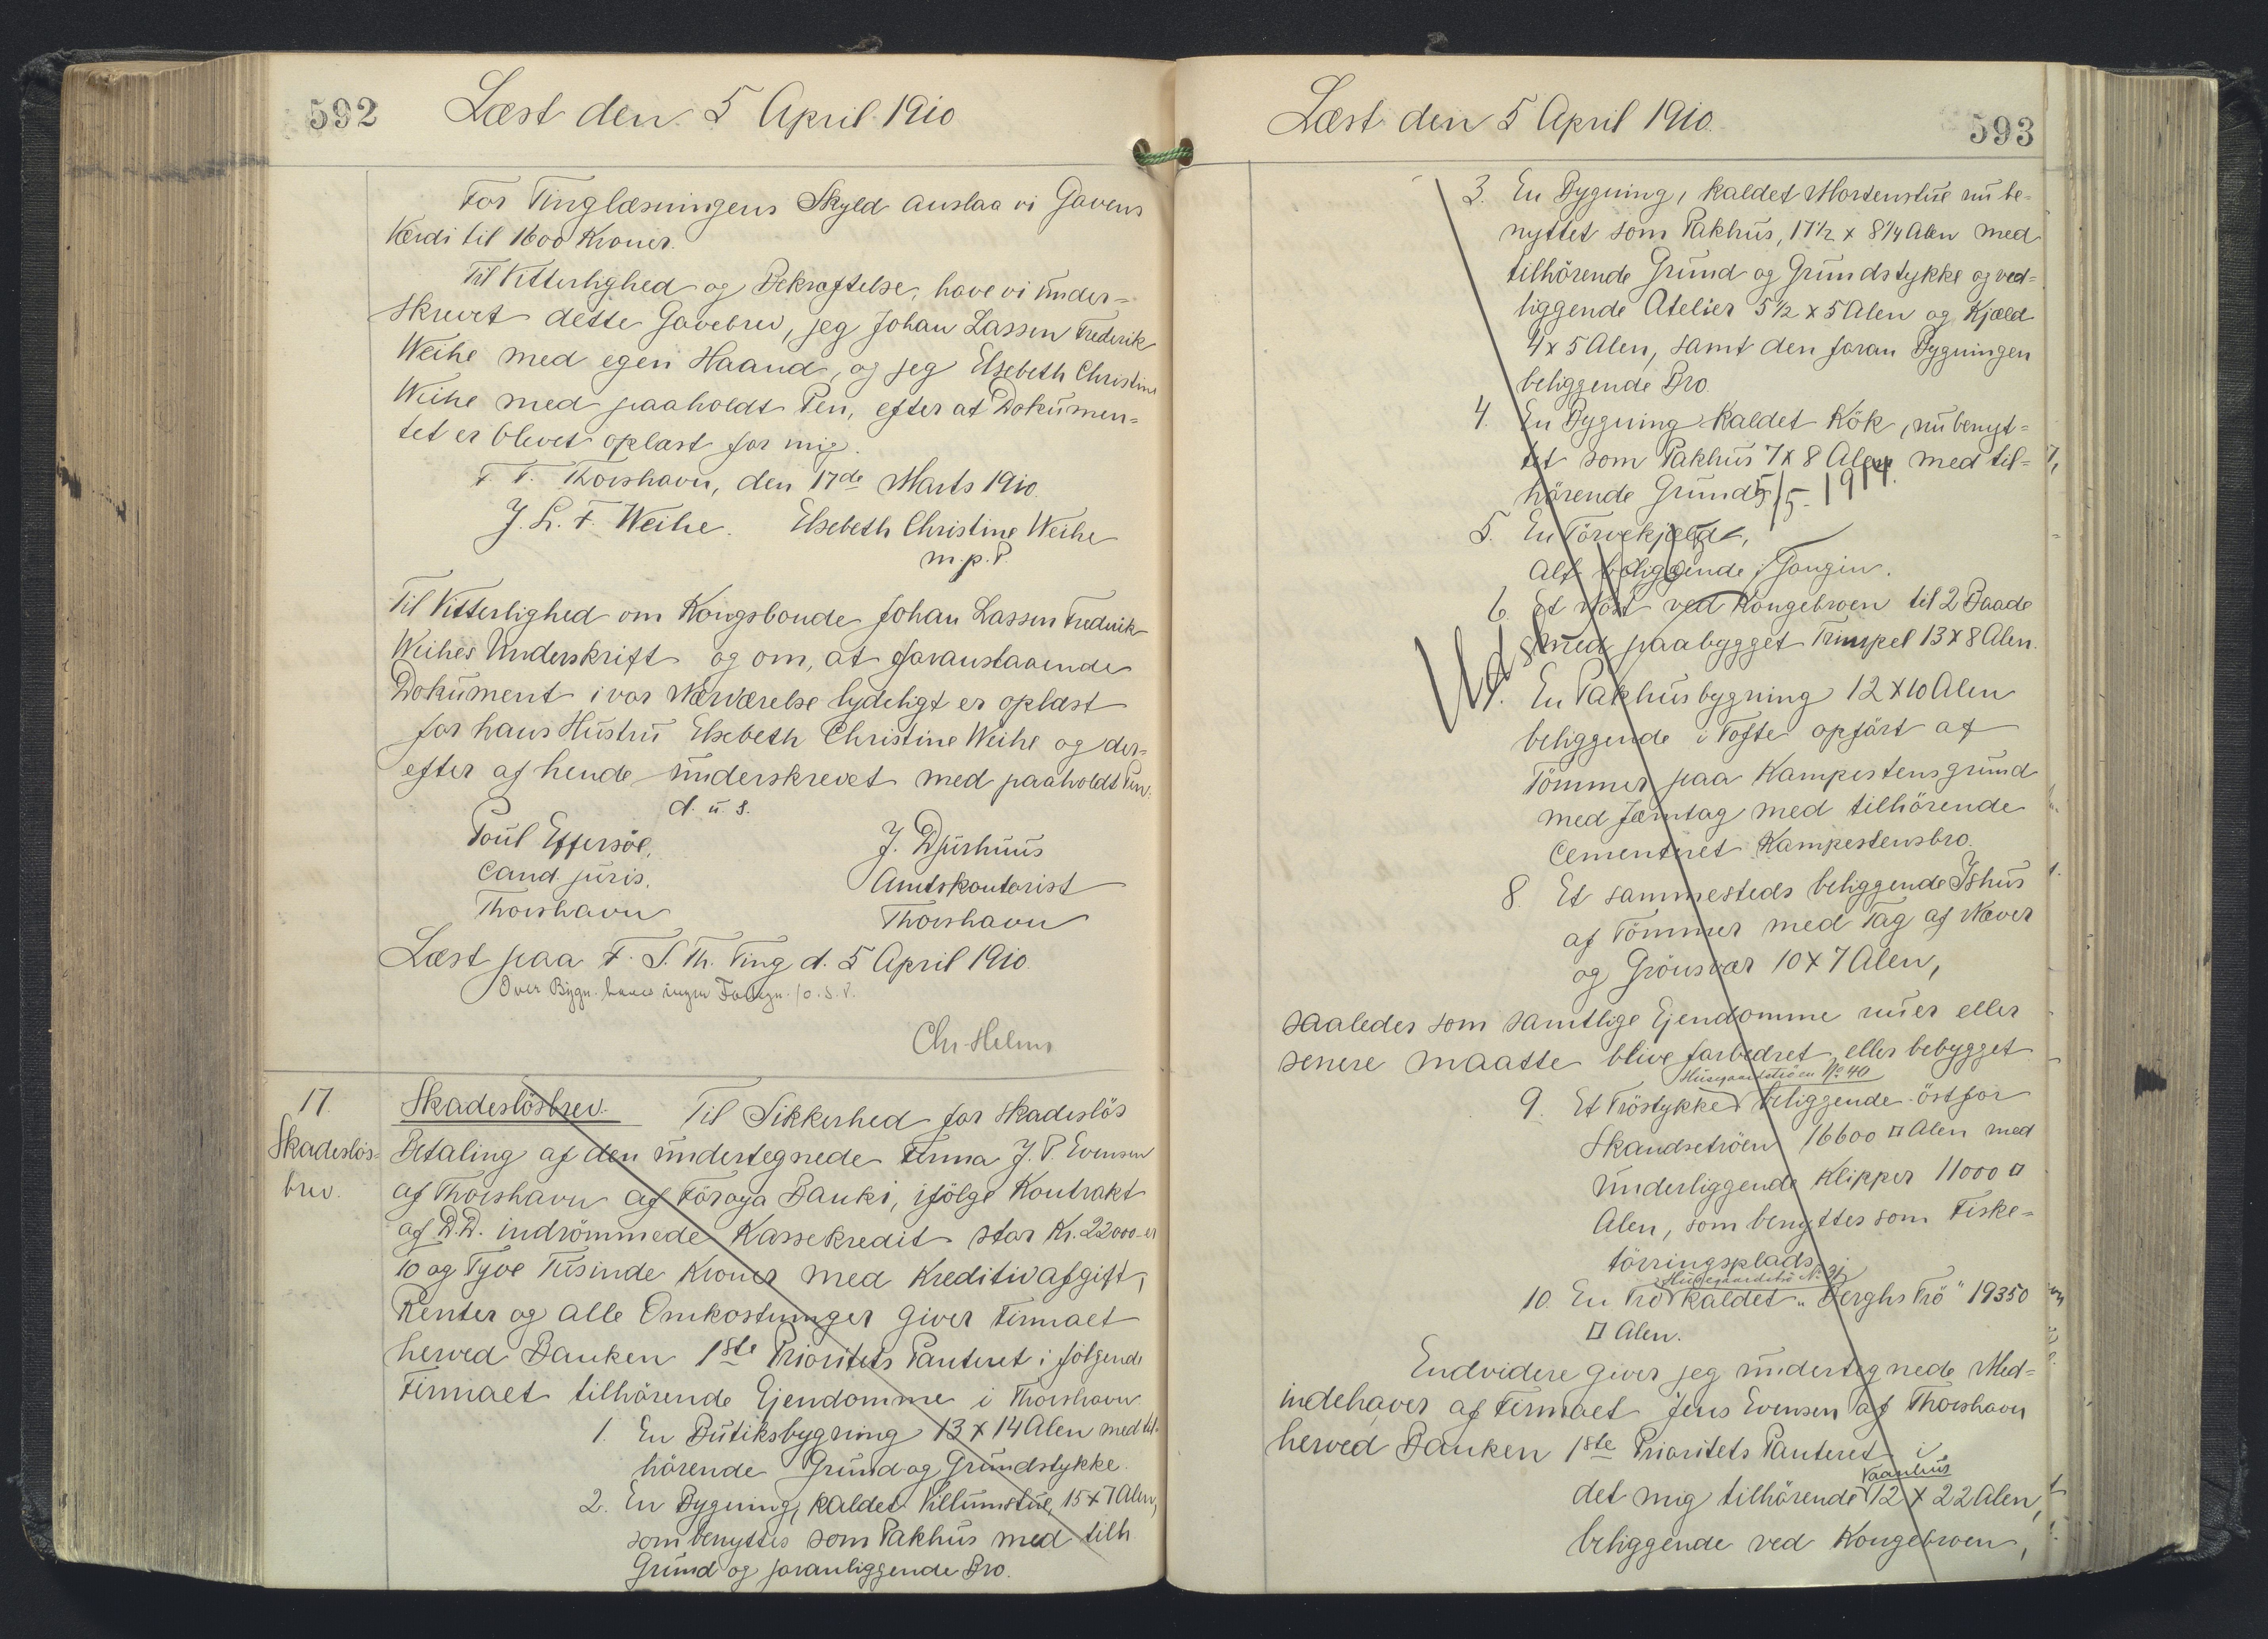 592
Læst den 5 April 1910
For Tinglæsningens Skyld anslaa vi Gavens
Værdi til 1600 Kroner.
Til Vitterlighed og Bekræftelse, have vi under-
skrevet dette Gavebrev, jeg Johan Lassen Frederik
Weihe med egen Haand, og jeg Elsebeth Christine
Weihe med paaholdt Pen, efter at Dokumen-
tet er blevet oplæst for mig.
T. T. Thorshavn, den 17de Marts 1910.
J. L. F. Weihe. Elsebeth Christine Weihe
m. p. P.
Til Vitterlighed om Kongsbonde Johan Lassen Frederik
Weihes Underskrift og om, at foranstaaende
Dokument i vor Nærværelse lydeligt er oplæst
for hans Hustru Elsebeth Christine Weihe og der-
efter af hende underskrevet med paaholdt Pen.
d. u. s.
Poul Effersöe, J. Djurhuus
cand. juris. Amtskontorist
Thorshavn Thorshavn
Læst paa F. S. Th. Ting d. 5 April 1910.
Over Bygn. haves ingen
Chr. Helms
17.
Skadeslös-
brev.
Skadeslösbrev. Til Sikkerhed for skadeslös
Betaling af den undertegnede Firma J. P. Evensen
af Thorshavn af Föroya Banki, ifölge Kontrakt
af D.D. indrömmede Kassekredit stor Kr. 22000 er
To og Tyve Tusinde Kroner med Kreditivafgift,
Renter og alle Omkostninger giver Firmaet
herved Banken 1ste Prioritets Panteret i fölgende
Firmaet tilhörende Ejendomme i Thorshavn
1. En Butiksbygning 13 x 14 Alen med til-
hörende Grund og Grundstykke.
2. En Bygning, kaldet Villumstue, 15 x 7 Alen,
som benyttes som Pakhus med tilh.
Grund og foranliggende Bro.
Læst den 5 April 1910.
593
3. En Bygning, kaldet Mortenstue nu be-
nyttet som Pakhus, 17½ x 8¼ Alen med
tilhörende Grund og Grundstykke og ved-
liggende Atelier 5½ x 5 Alen og Kjæld
4 x 5 Alen, samt den foran Bygningen
beliggende Bro.
4. En Bygning kaldet Kök, nu benyt-
tet som Pakhus 7 x 8 Alen med til-
hörende Grund
5/5 - 1914.
5. En Törvekjæld,
alt beliggende i Gongin.
6 Et Nöst ved Kongebroen til 2 Baade
med paabygget Trumpel 13 x 8 Alen.
En Pakhusbygning 12 x 10 Alen
beliggende i Tofte opfört af
Tömmer paa Kampestensgrund
med Jærntag med tilhörende
cementeret Kampestensbro.
8. Et sammesteds beliggende Ishus
af Tömmer med Tag af Næver
og Grönsvær 10 x 7 Alen,
saaledes som samtlige Ejendomme nu er eller
senere maatte blive forbedret eller bebygget
Husegaardströen No 40
9. Et Tröstykke beliggende öst for
Skandsetröen 16600 □ Alen med
underliggende Klipper 11000 □
Alen, som benyttes som Fiske-
törringsplads
Husegaardströ No 21
10. En Trö kaldet "Berghs Trö" 19350
□ Alen.
Endvidere giver jeg undertegnede Med-
indehaver af Firmaet Jens Evensen af Thorshavn
herved Banken 1ste Prioritets Panteret i
Vaanhus
det mig tilhörende 12 x 22 Alen,
beliggende ved Kongebroen,